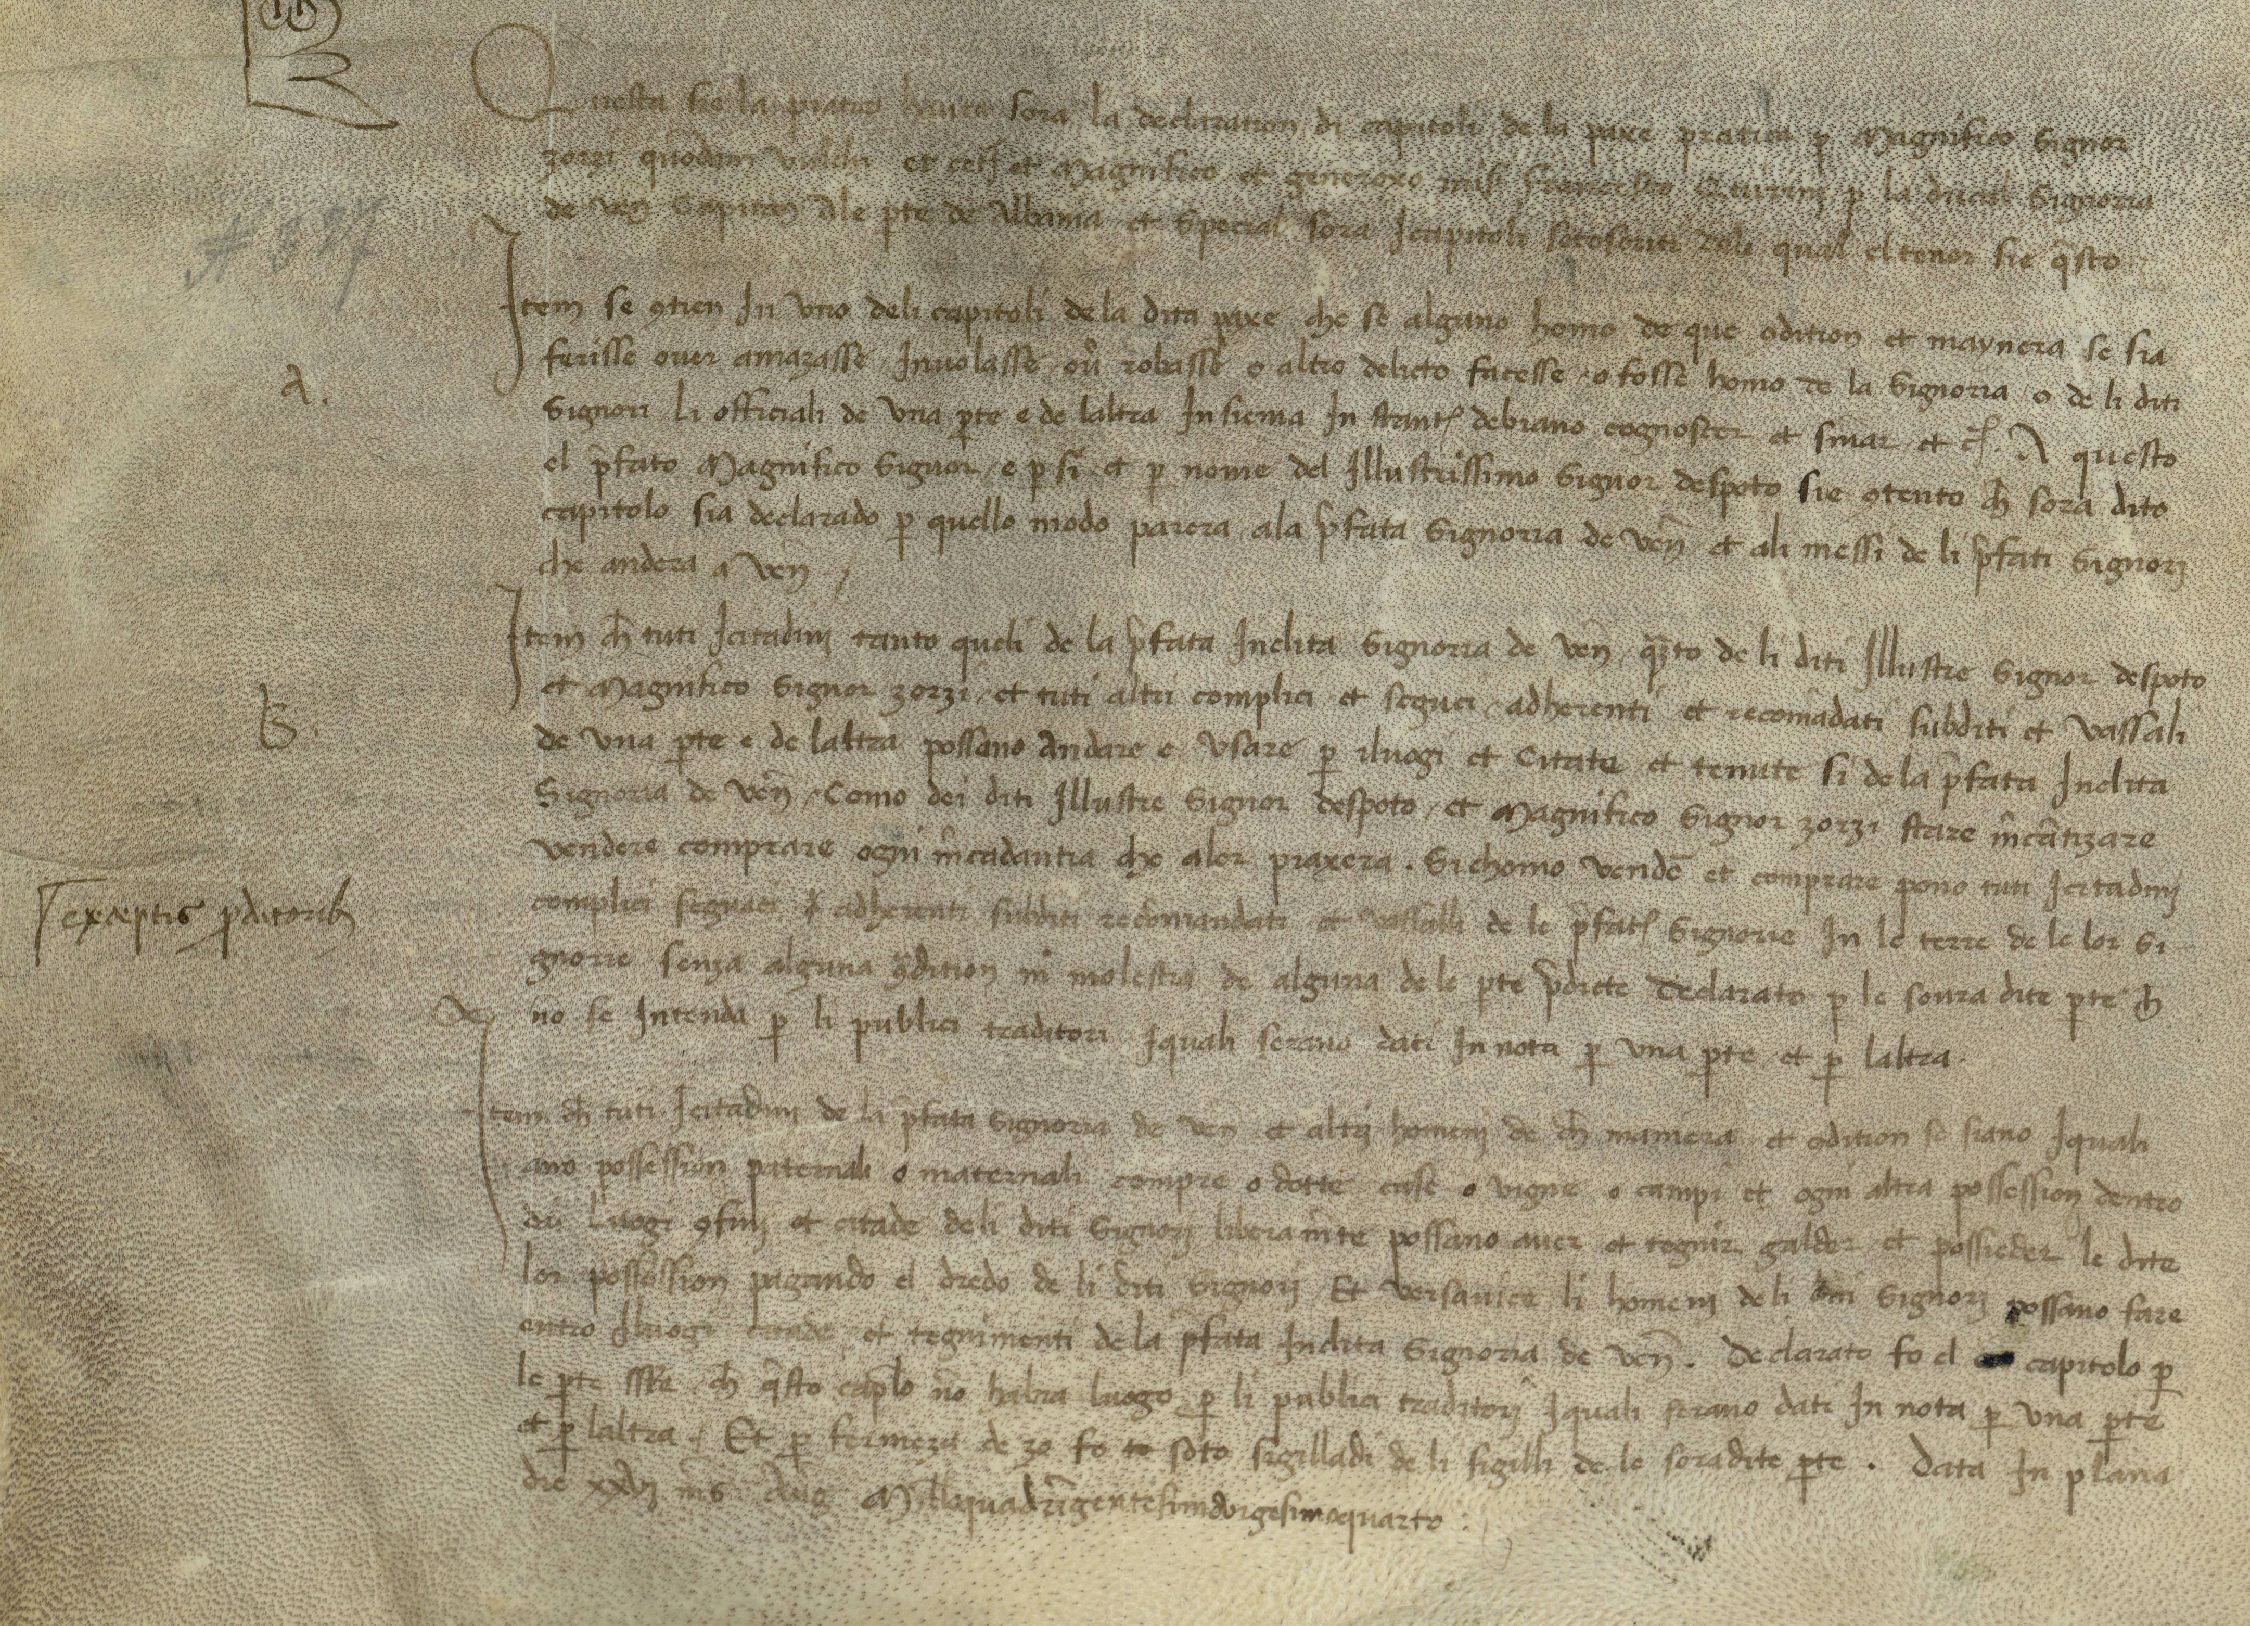 Questa sie la pratica hauta sora la declaration di capitoli de la paxe pratica p Magnifico Signor
zorzi quodam Vulchi et cet et Magnifico et generoxo mis Francesco Quirinj p la ducal Signoria
de Ven Capitan dle pte de Albania et Special sora Icapitoli sotoscriti deli qual el tenor sie qsto
Item se 9tien In vno deli capitoli dela dita paxe che se alguno homo de que 9dition et maynera se sia
A. ferisse ouer amazasse Inuolasse ou robasse o altro delicto facesse o fosse homo de la Signoria o de li diti
Signori li officiali de vna pte e de laltra Insiema In stant debiano cognoscer et smar et c. A questo
el pfato Magnifico Signor e p si et p nome del Illustrissimo Signor despoto sie 9tento ch sora dito
capitolo sia declarado p quello modo parera ala pfata Signoria de ven et ali messi de li pfati Signorj
che andera a Ven
Item ch tuti Icitadinj tanto queli de la pfata Inclita Signoria de Ven qto de li diti Illustre Signor despoto
B. et Magnifico Signor zorzi et tuti altri complici et seguci adherenti et recomadati subditi et vassali
de vna pte e de laltra possano andare e vsare p iluogi et Citate et tenute si de la pfata Inclita
Signoria de Ven Como dei diti Illustre Signor despoto et Magnifico Signor zorzi stare mcatizare
vendere comprare ogni mcadantia che alor piaxera. Sichomo vende et comprare pono tuti Icitadinj
exceptis pditorib complici seguaci adherenti subditi recomandati et vassalli de le pfat Signorie In le terre de le lor Si
gnorie senza alguna 9dition ni molestia de alguna de le pte pdicte Declarato p le soura dite pte ch
no se Intenda p li publici traditori Iquali serano dati In nota p vna pte et p laltra.
Item ch tuti Icitadinj de la pfata Signoria de Ven et altrj homenj de ch maniera et 9dition se siano Iquali
ano possession paternali o maternali compre o dotte case o vigne o campi et ogni altra possession dentro
dai luogi 9finj et citade de li diti Signorj liberamte possano auer et tegnir galder et possieder le dite
lor possession pagando el dredo de li diti Signorj Et versauice li homenj deli diti Signorj possano fare
entro Iluogi citade et tegnimenti de la pfata Inclita Signoria de Ven. Declarato fo el capitolo p
le pte sste ch qsto caplo no habia luogo p li publici traditorj Iquali serano dati In nota p vna pte
et p laltra. Et p fermeza de zo fo soto sigilladi de li sigilli de le soradite pte. Data In plana
die xxvj ms Aug Milloquadrigentesimovigesimoquarto